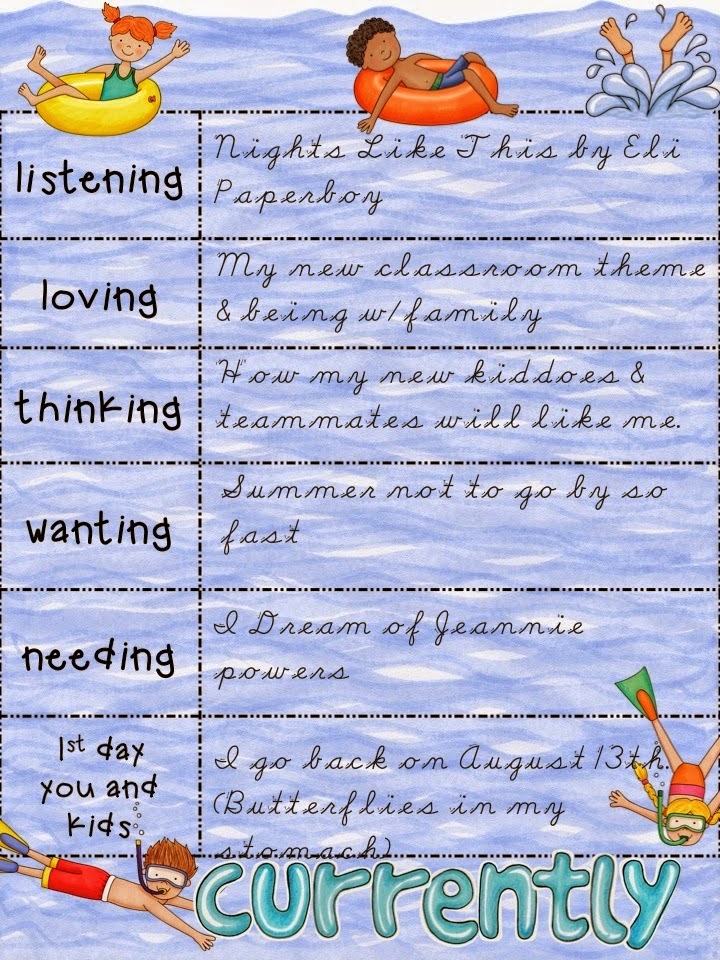 listening
Nights Like This by Eli
Paperboy
loving
My new classroom theme
& being w/family
thinking
How my new kiddoes &
teammates will like me.
wanting
Summer not to go by so
fast
needing
I Dream of Jeannie
powers
1st day
you and
kids
I go back on August 13th.
(Butterflies in my
stomach)
currently